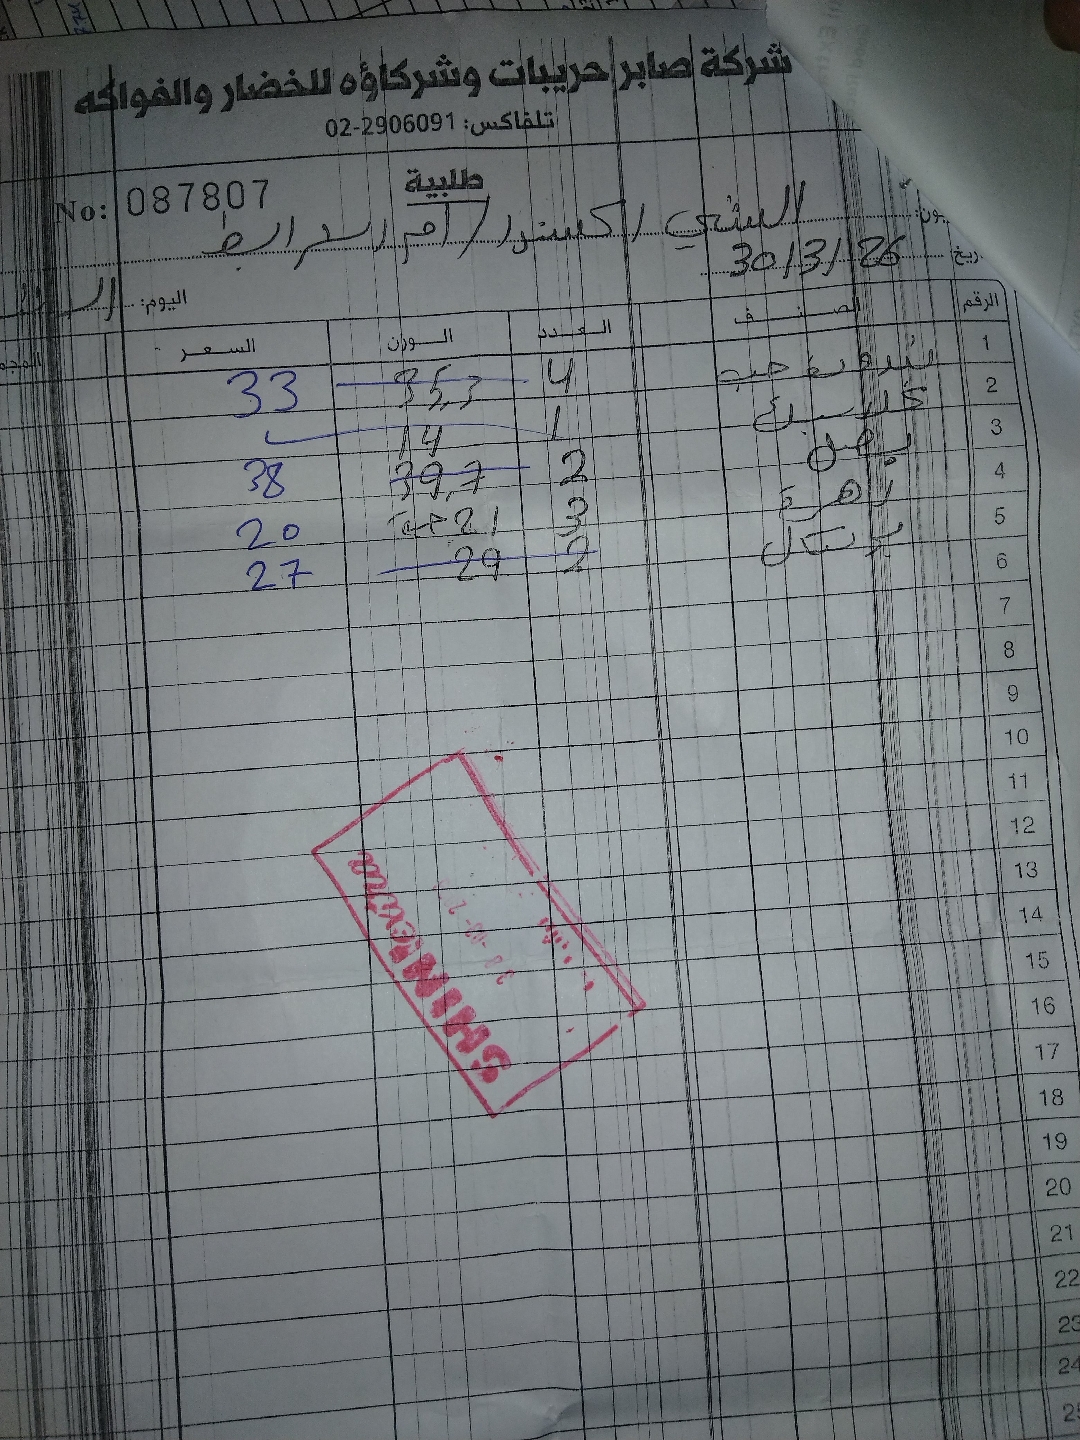 شركة صابر حريبات وشركاؤه للخضار والفواكه
تلفاكس: 02-2906091
No: 087807
طلبية
الشني / اكسترا / ام الشرايط
30/3/26
اليوم:
الرقم الصنف العدد الوزن السعر
1 بندورة حب 4 35,3 33
2 1 14
3 بصل 2 39,7 38
4 زهرة 3 21 حبة 20
5 برتقال 2 29 27
6
7
8
9
10
11
12
13
14
15
16
17
18
19
20
21
22
23
24
25
SHINIextra